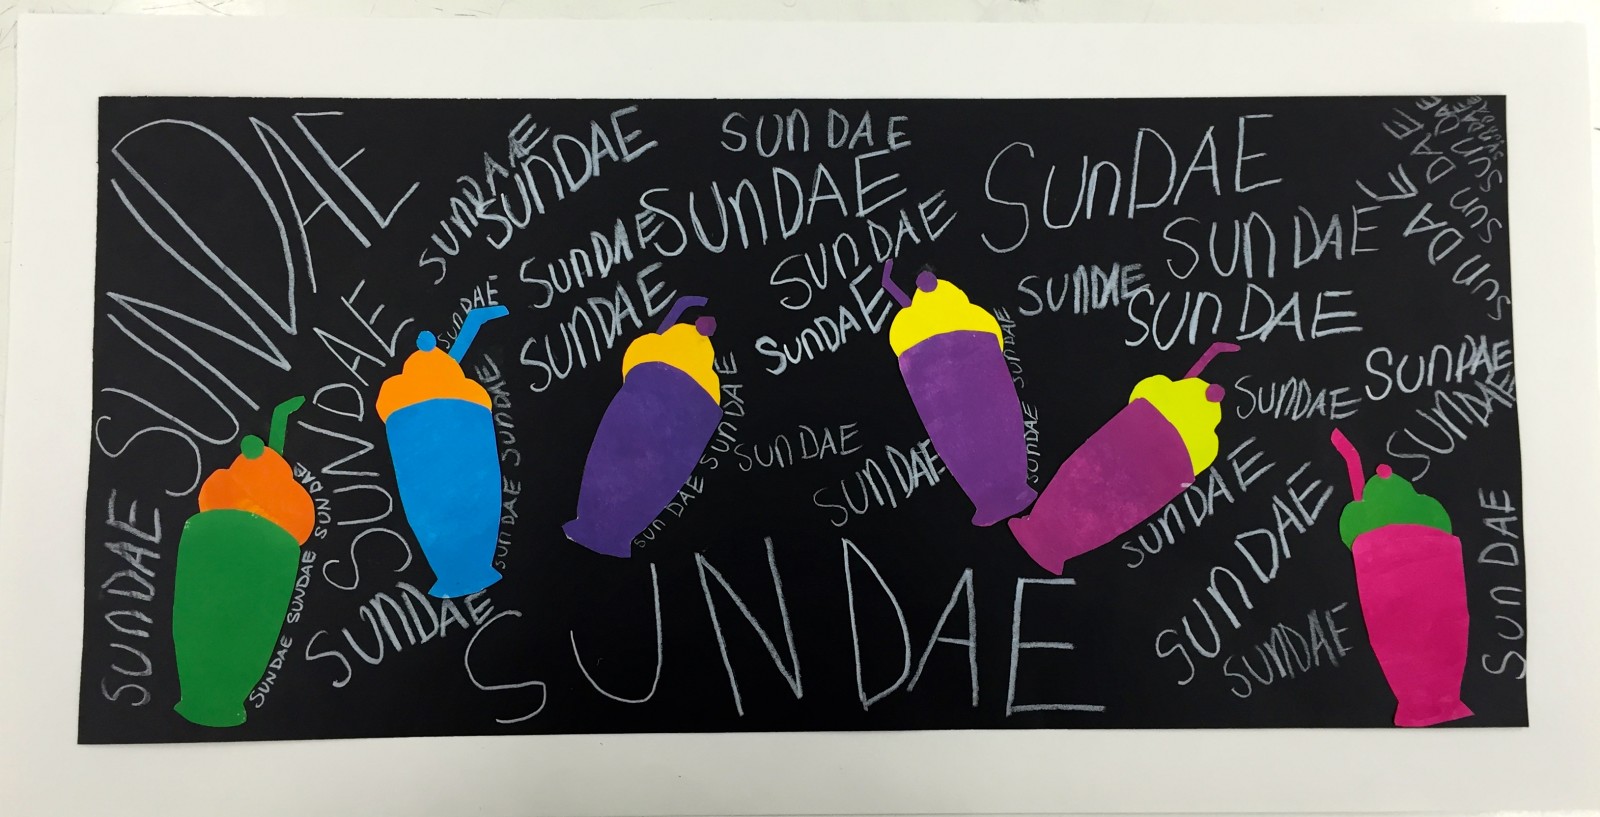 SUNDAE
SUNDAE
SUNDAE
SUNDAE
SUNDAE
SUNDAE
SUNDAE
SUNDAE
SUNDAE
SUNDAE
SUNDAE
SUNDAE
SUNDAE
SUNDAE
SUNDAE
SUNDAE
SUNDAE
SUNDAE
SUNDAE
SUNDAE SUNDAE
SUNDAE SUNDAE
SUNDAE SUNDAE
SUNDAE
SUNDAE
SUNDAE
SUNDAE
SUNDAE
SUNDAE
SUNDAE SUNDAE SUNDAE
SUNDAE
SUNDAE
SUNDAE
SUNDAE
SUNDAE
SUNDAE
SUNDAE